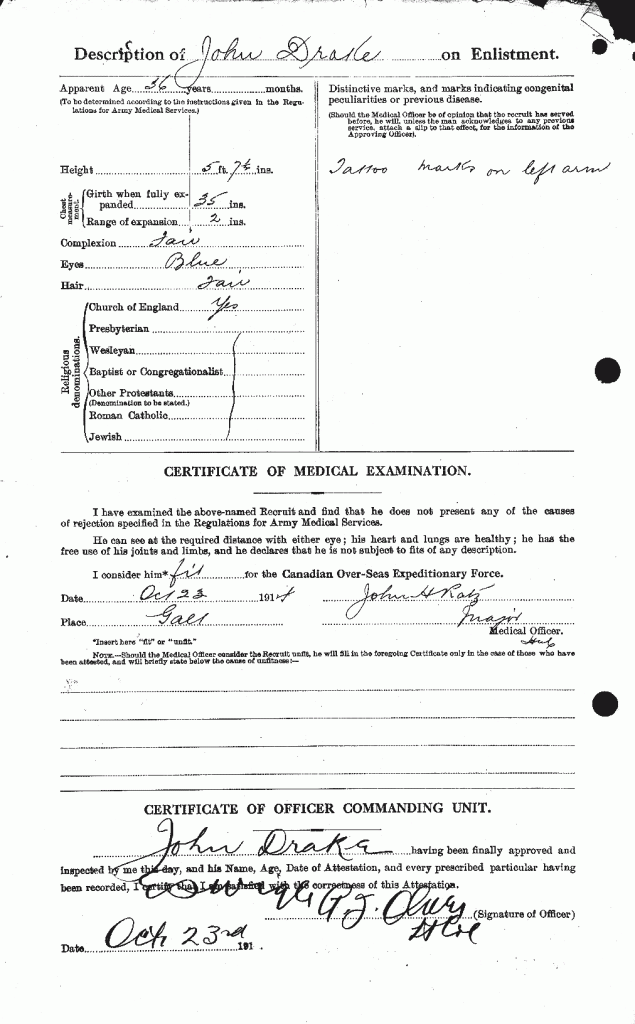 Description of John Drake on Enlistment.
Apparent Age 36 years months.
(To be determined according to the instructions given in the Regulations for Army Medical Services.)
Height 5 ft. 7½ ins.
Chest measurement.
Girth when fully expanded 35 ins.
Range of expansion 2 ins.
Complexion Fair
Eyes Blue
Hair Fair
Religious denominations.
Church of England Yes
Presbyterian
Wesleyan
Baptist or Congregationalist
Other Protestants
(Denomination to be stated.)
Roman Catholic
Jewish
Distinctive marks, and marks indicating congenital
peculiarities or previous disease.
(Should the Medical Officer be of opinion that the recruit has served
before, he will, unless the man acknowledges to any previous
service, attach a slip to that effect, for the information of the
Approving Officer).
Tattoo marks on left arm
CERTIFICATE OF MEDICAL EXAMINATION.
I have examined the above-named Recruit and find that he does not present any of the causes
of rejection specified in the Regulations for Army Medical Services.
He can see at the required distance with either eye; his heart and lungs are healthy; he has the
free use of his joints and limbs, and he declares that he is not subject to fits of any description.
I consider him* fit for the Canadian Over-Seas Expeditionary Force.
Date Oct 23 1914 John H Ratz
Place Galt Major
Medical Officer.
*Insert here "fit" or "unfit."
NOTE.—Should the Medical Officer consider the Recruit unfit, he will fill in the foregoing Certificate only in the case of those who have
been attested, and will briefly state below the cause of unfitness:—
CERTIFICATE OF OFFICER COMMANDING UNIT.
John Drake having been finally approved and
inspected by me this day, and his Name, Age, Date of Attestation, and every prescribed particular having
been recorded, I certify that I am satisfied with the correctness of this Attestation.
A. J. Oliver (Signature of Officer)
Lt Col
Date Oct 23rd 191 .